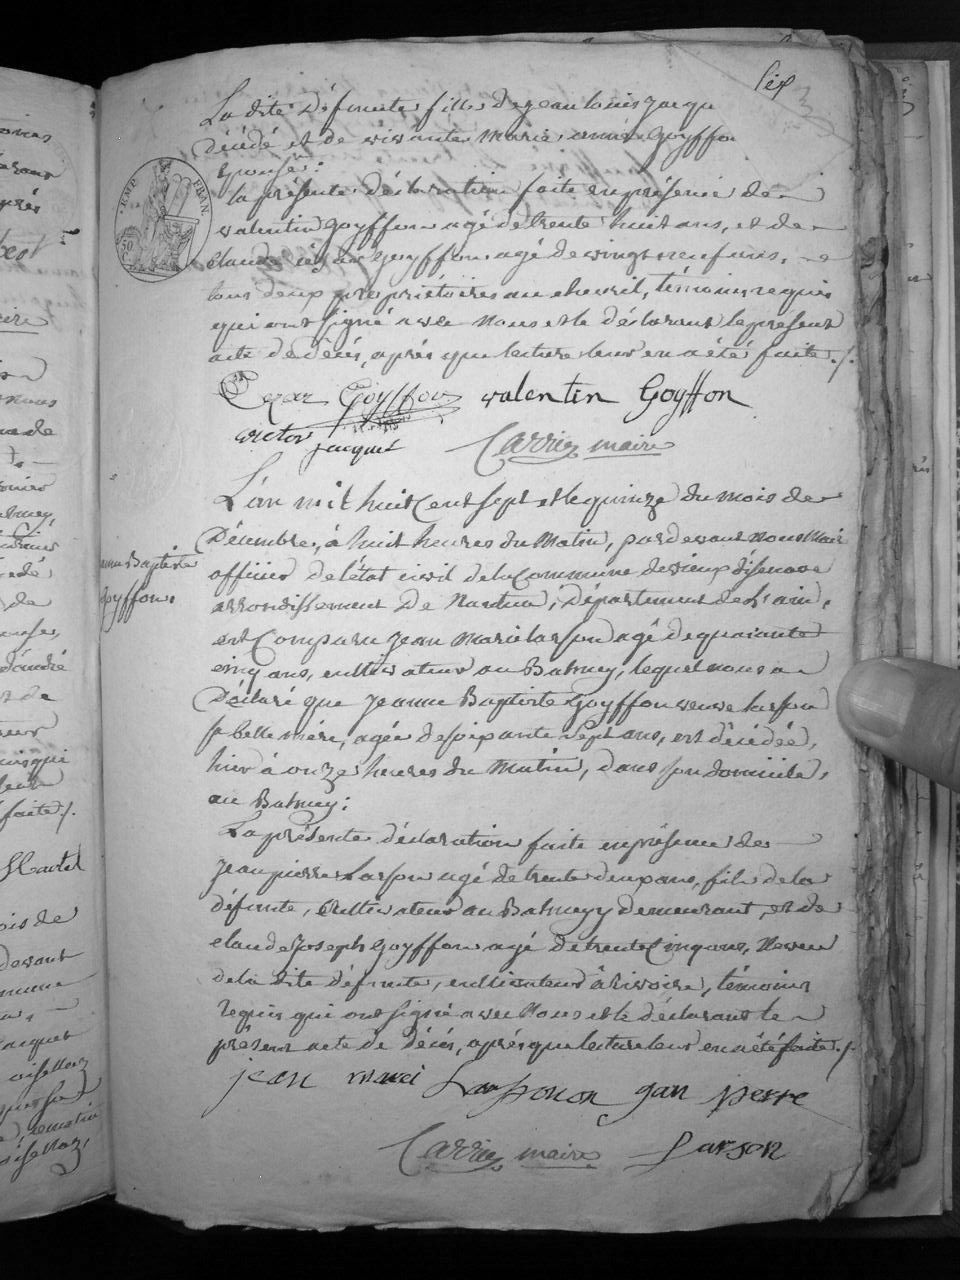 six
La dite défunte fille de jean louis jacqu
décédé et de vivante Marie aimée Goyffon
épouse;
la présente déclaration faite en présence de
valentin goyffon agé de trente huit ans, et de
claude césar goyffon agé de vingt neuf ans,
tous deux propriétaires au chevril, témoins requis
qui ont signé avec Nous et le déclarant le présent
acte de décès, après que lecture leur en a été faite ./.
EMP. FRAN.
Cezar Goyffon valentin Goyffon
victor
jacquet
Carrier maire
L'an mil huit Cent sept et le quinze du mois de
Décembre, à huit heures du Matin, pardevant nous Maire
officier de l'état civil de la Commune de vieux d'isenave
arrondissement De Nantua, département de L'ain,
est Comparu jean Marie larson agé de quarante
cinq ans, cultivateur au Balmey, lequel nous a
Déclaré que jeanne Baptiste Goyffon veuve larson
sa belle mère, agée de soixante sept ans, est décédée,
hier à onze heures du Matin, dans son domicile,
au Balmey;
Baptiste
yffon.
La présente déclaration faite en présence de
jean pierre larson agé de trente deux ans, fils de la
défunte, Cultivateur au Balmey y demeurant, et de
claude joseph goyffon agé de trente Cinq ans, Neveu
de la dite défunte, cultivateur à rivoire, témoins
requis qui ont signé avec Nous et le déclarant le
présent acte de décès, après que lecture leur en a été faite ./.
jean marei Larsonon gan pierre
Carrier maire Larson